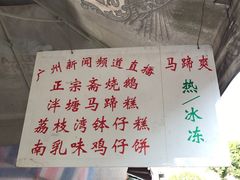 广州新闻频道直播
正宗斋烧鹅
泮塘马蹄糕
荔枝湾钵仔糕
南乳味鸡仔饼
马蹄爽
热/冰冻